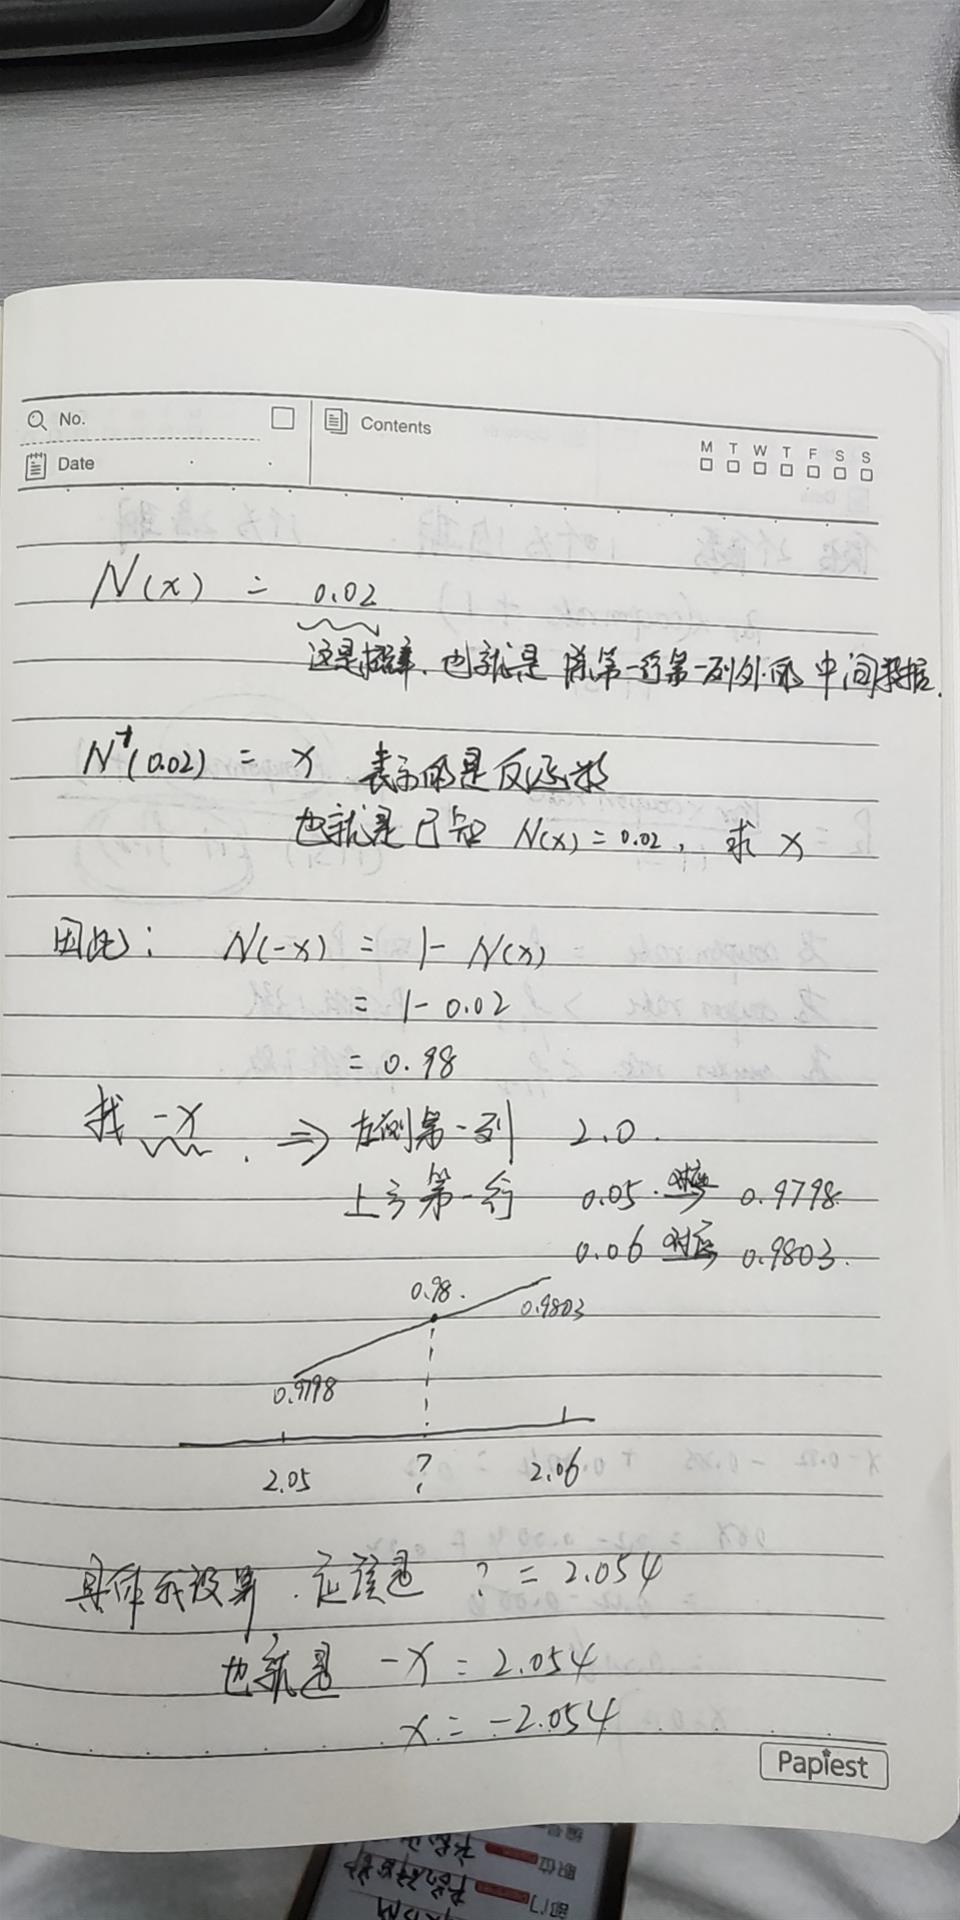 No.
Contents
M T W T F S S
Date
N(x) = 0.02
这是概率.也就是除第一行第一列外的中间数据.
N⁻¹(0.02) = x 表示的是反函数
也就是已知 N(x)=0.02, 求 x
因此: N(-x) = 1- N(x)
= 1-0.02
= 0.98
找 -x . ⇒ 左侧第一列 2.0.
上方第一行 0.05.对应 0.9798.
0.06 对应 0.9803.
0.98.
0.9803
0.9798
2.05 ? 2.06
具体我没算.应该是 ? = 2.054
也就是 -x = 2.054
x = -2.054
Papiest
职位
部门